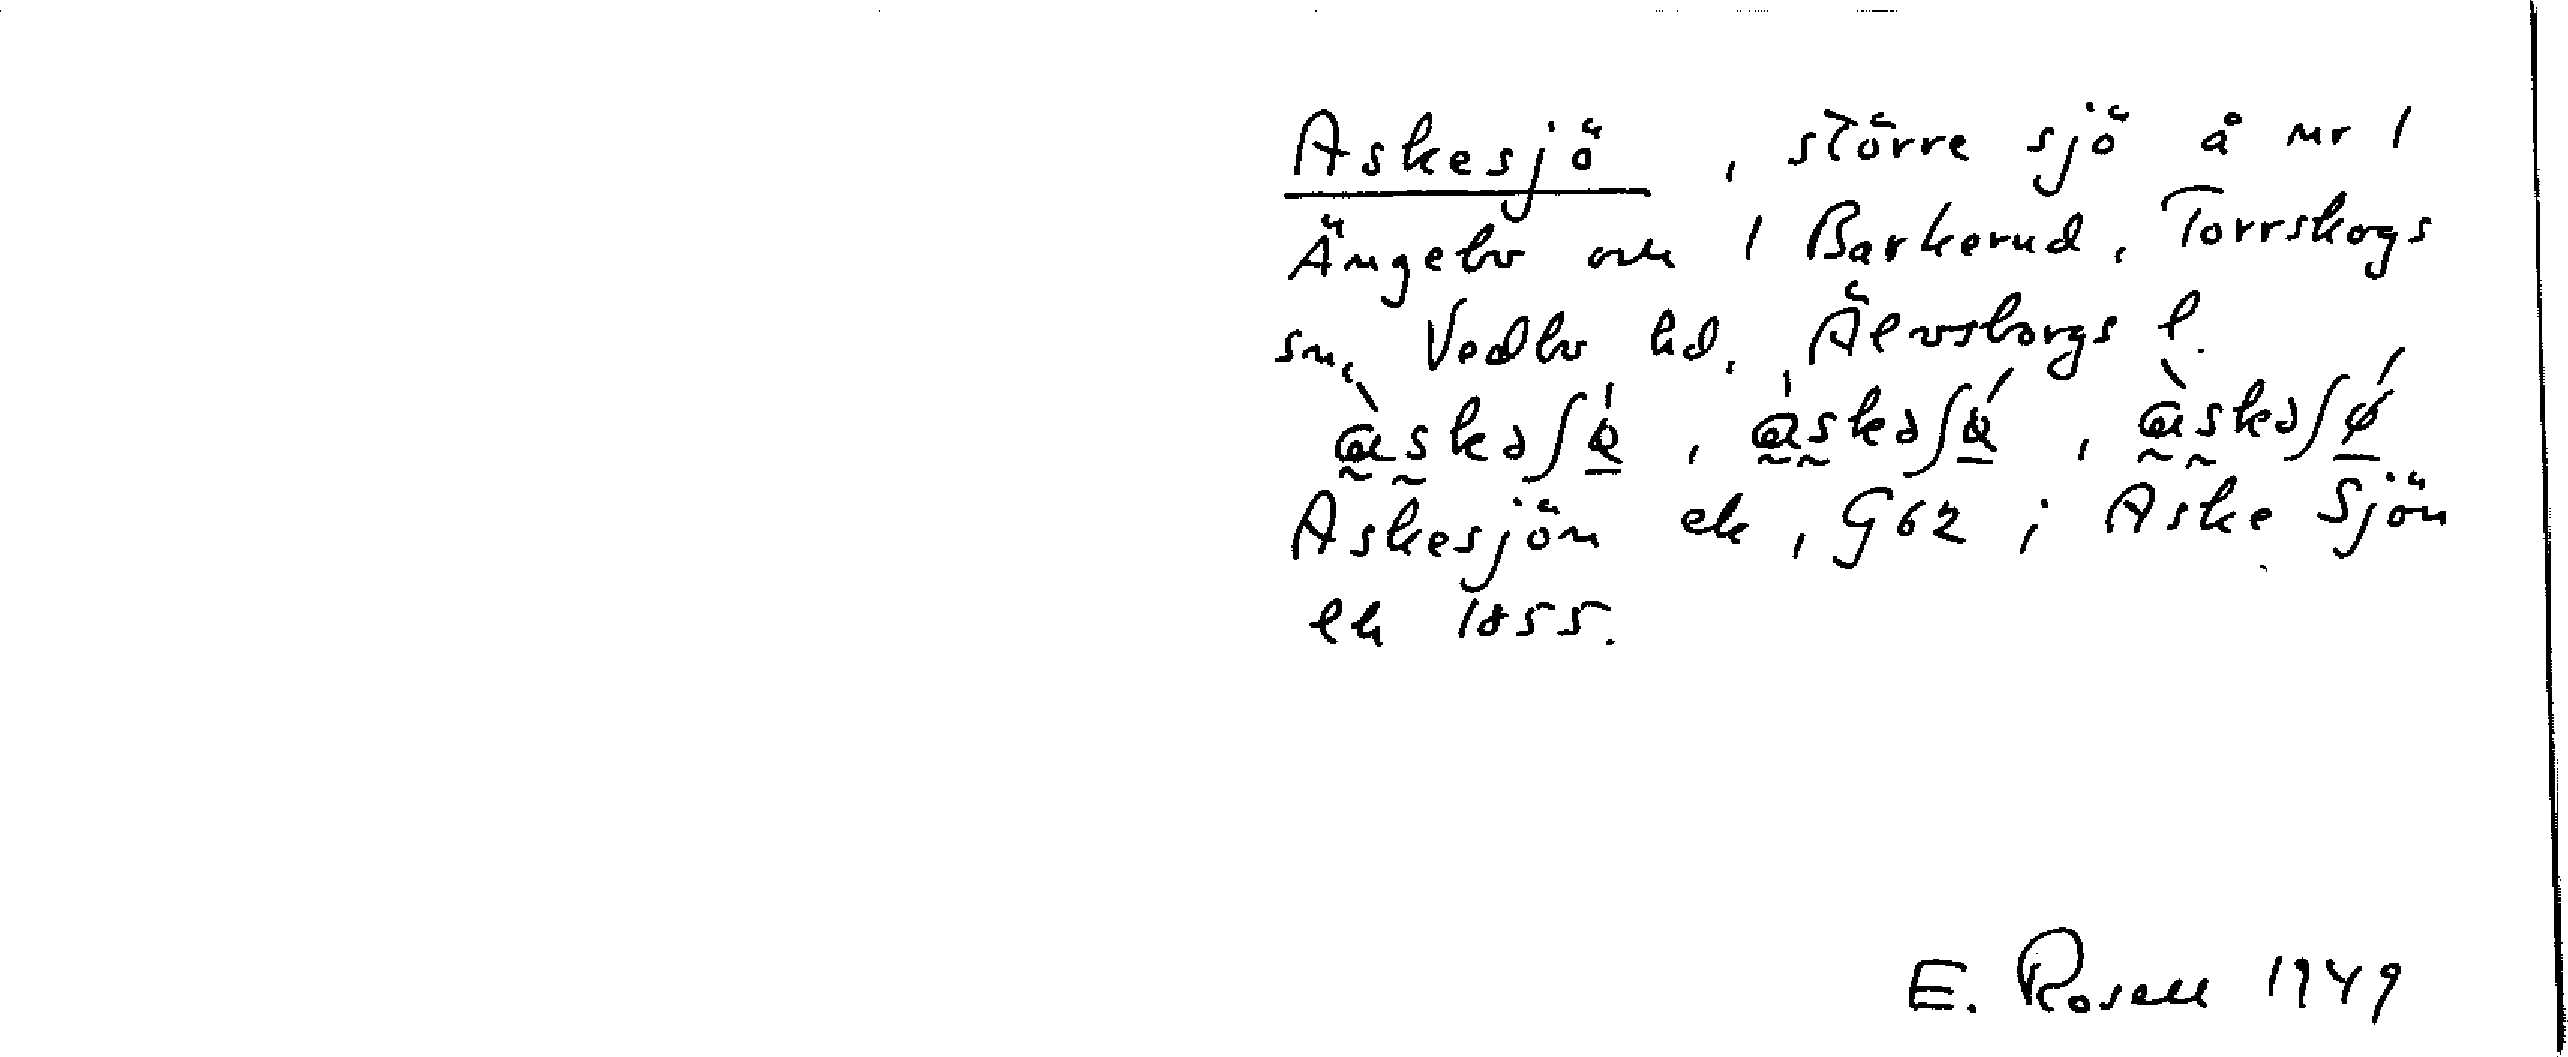 Askesjö, större sjö å nr 1
Ängebo och 1 Barkerud, Torrskogs
sn, Vedbo hd, Älvsborgs l.
Askesjön ek, G62; Aske Sjön
lh 1855.
E. Rosell 1949